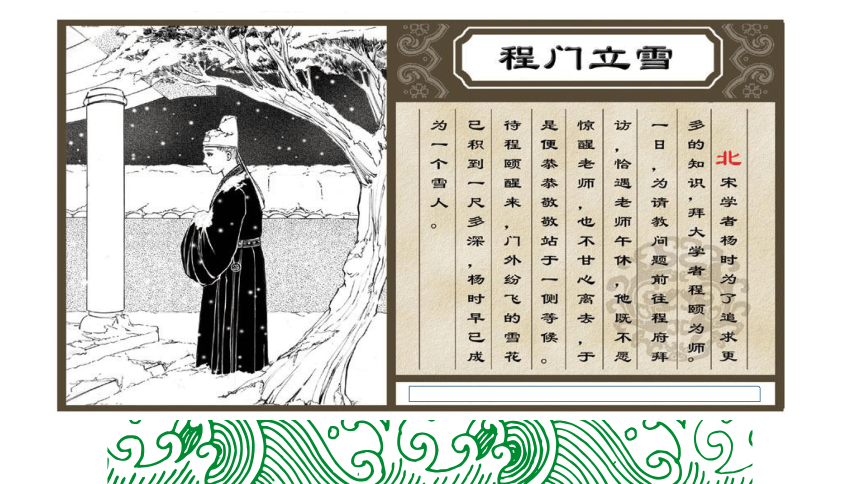 程门立雪
北宋学者杨时为了追求更
多的知识，拜大学者程颐为师。
一日，为请教问题前往程府拜
访，恰遇老师午休，他既不愿
惊醒老师，也不甘心离去，于
是便恭恭敬敬站于一侧等候。
待程颐醒来，门外纷飞的雪花
已积到一尺多深，杨时早已成
为一个雪人。